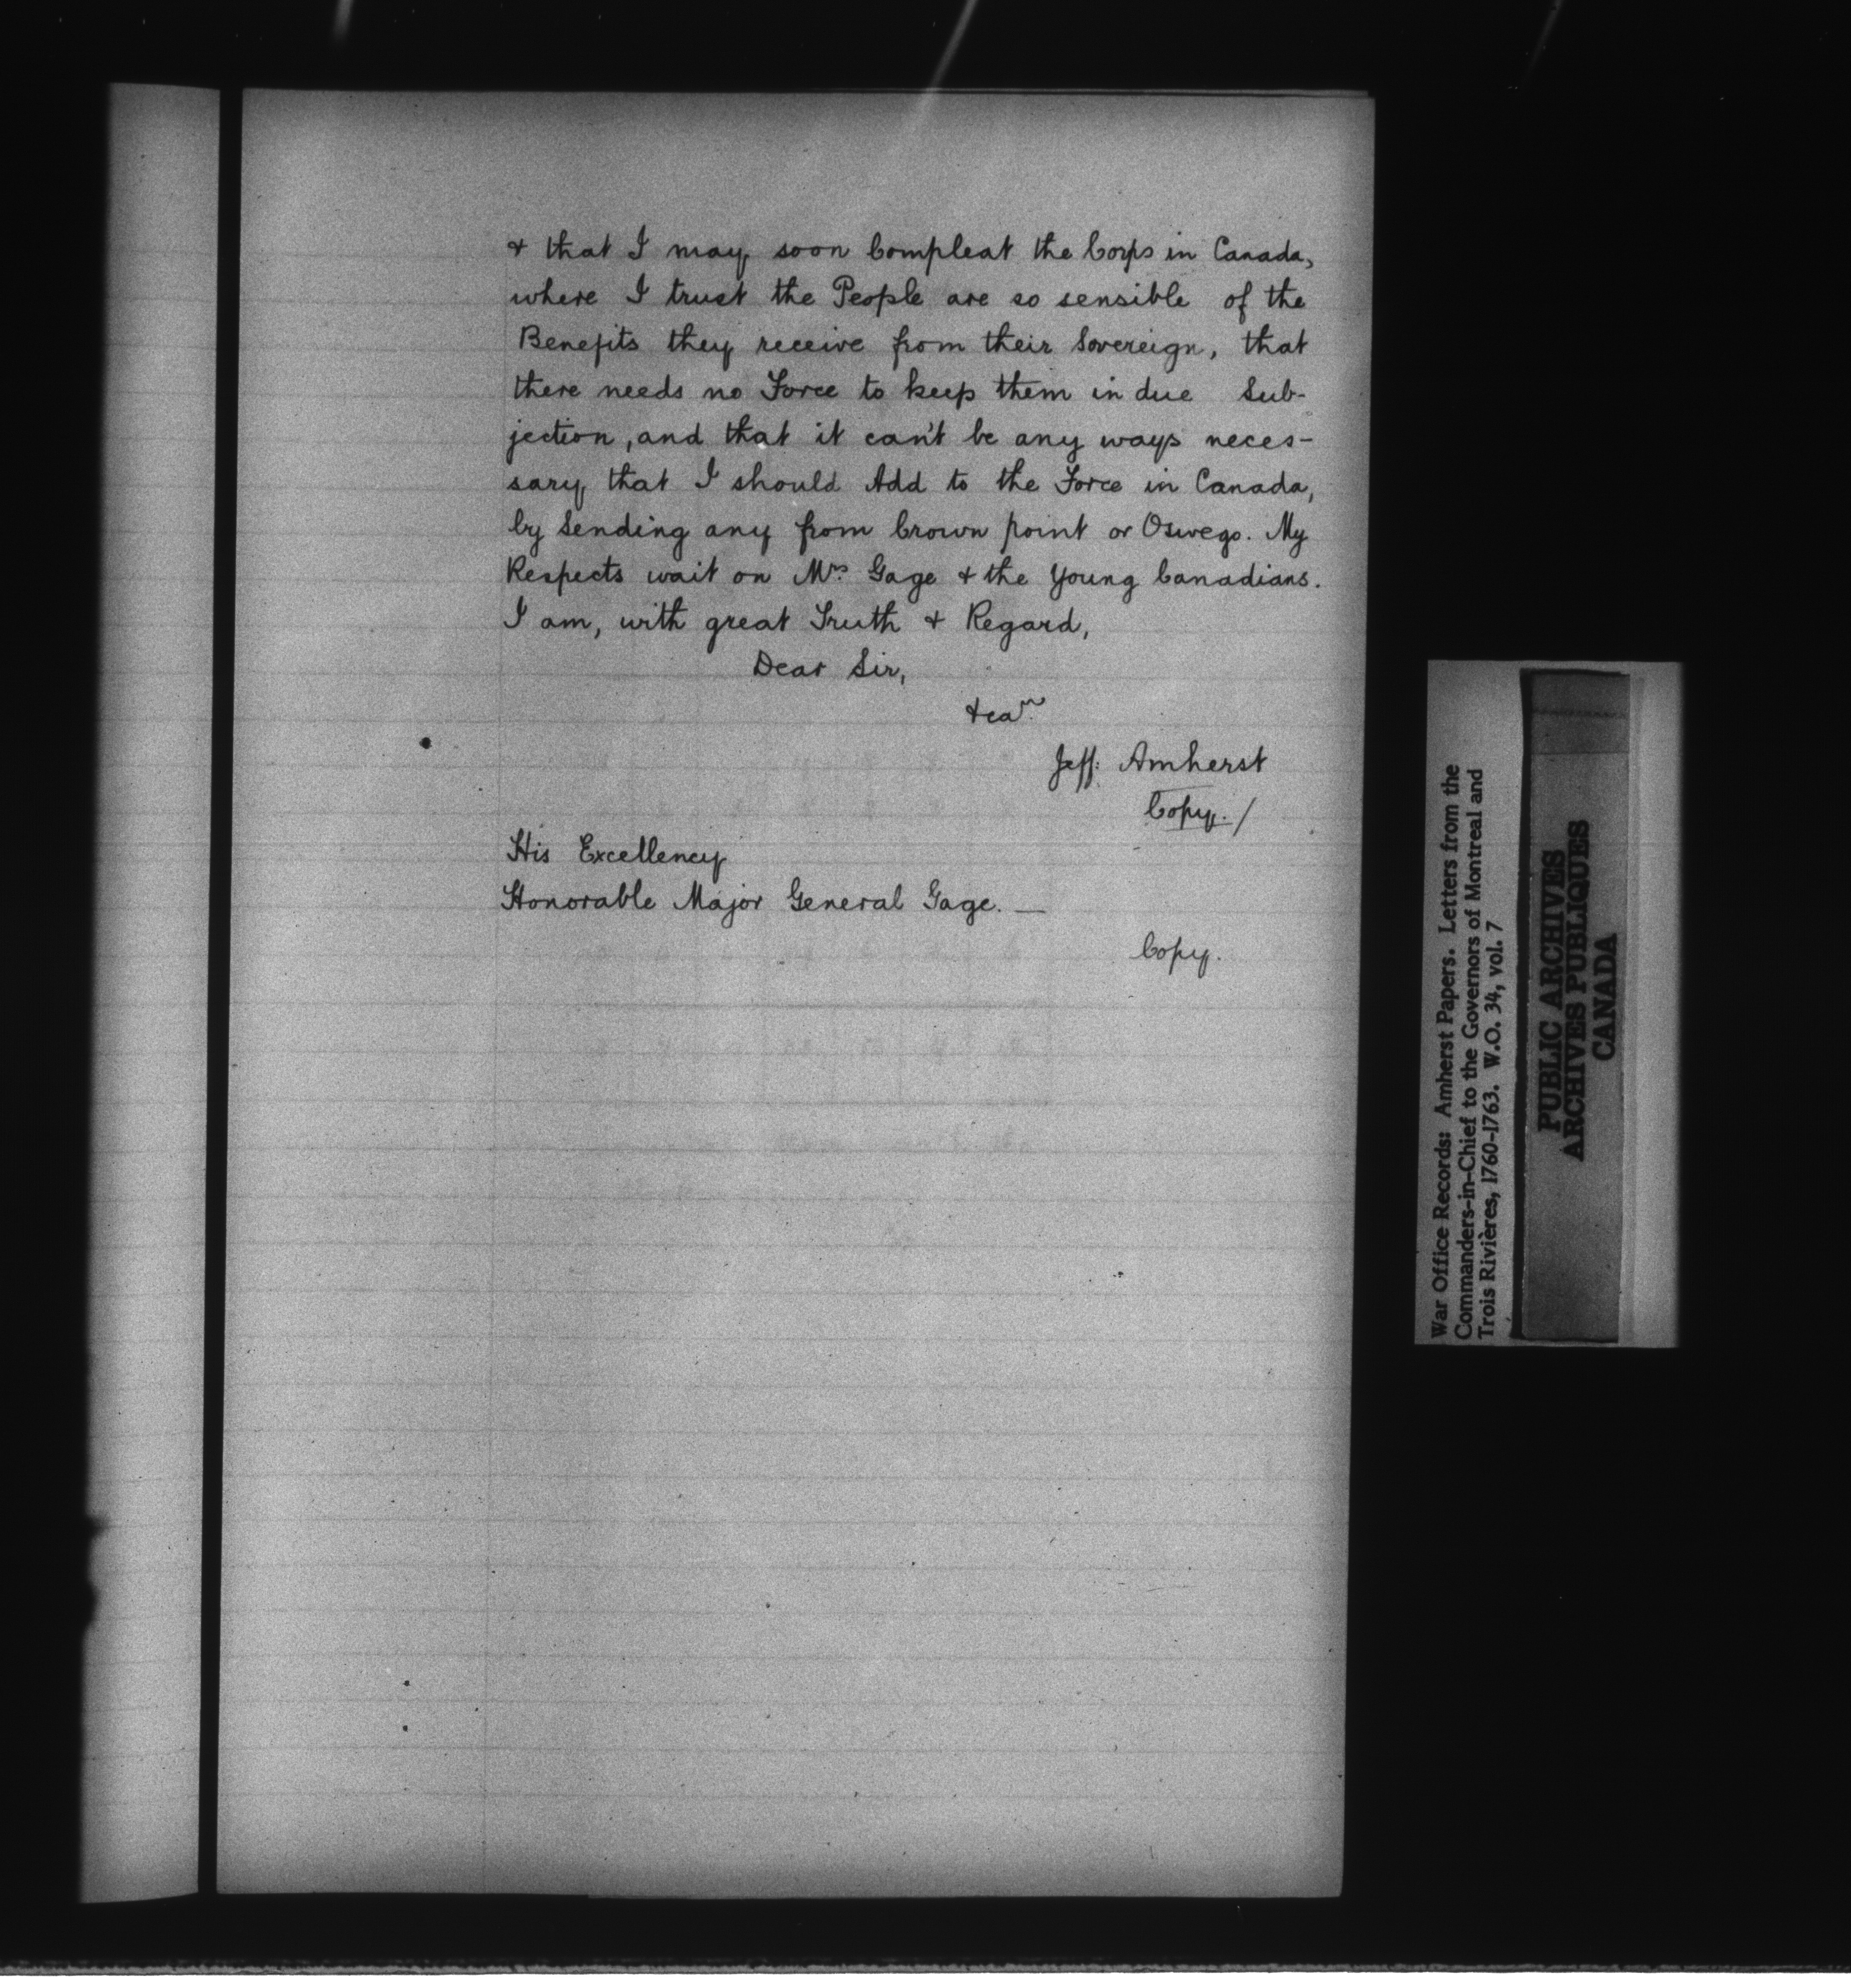 & that I may soon Compleat the Corps in Canada,
where I trust the People are so sensible of the
Benefits they receive from their Sovereign, that
there needs no Force to keep them in due Sub-
jection, and that it can't be any ways neces-
sary that I should Add to the Force in Canada,
by Sending any from Crown point or Oswego. My
Respects wait on Mrs. Gage & the Young Canadians.
I am, with great Truth & Regard,
Dear Sir,
&ca.
Jeff: Amherst
Copy./
His Excellency
Honorable Major General Gage. —
Copy.
War Office Records: Amherst Papers. Letters from the
Commanders-in-Chief to the Governors of Montreal and
Trois Rivières, 1760-1763. W.O. 34, vol. 7
PUBLIC ARCHIVES
ARCHIVES PUBLIQUES
CANADA